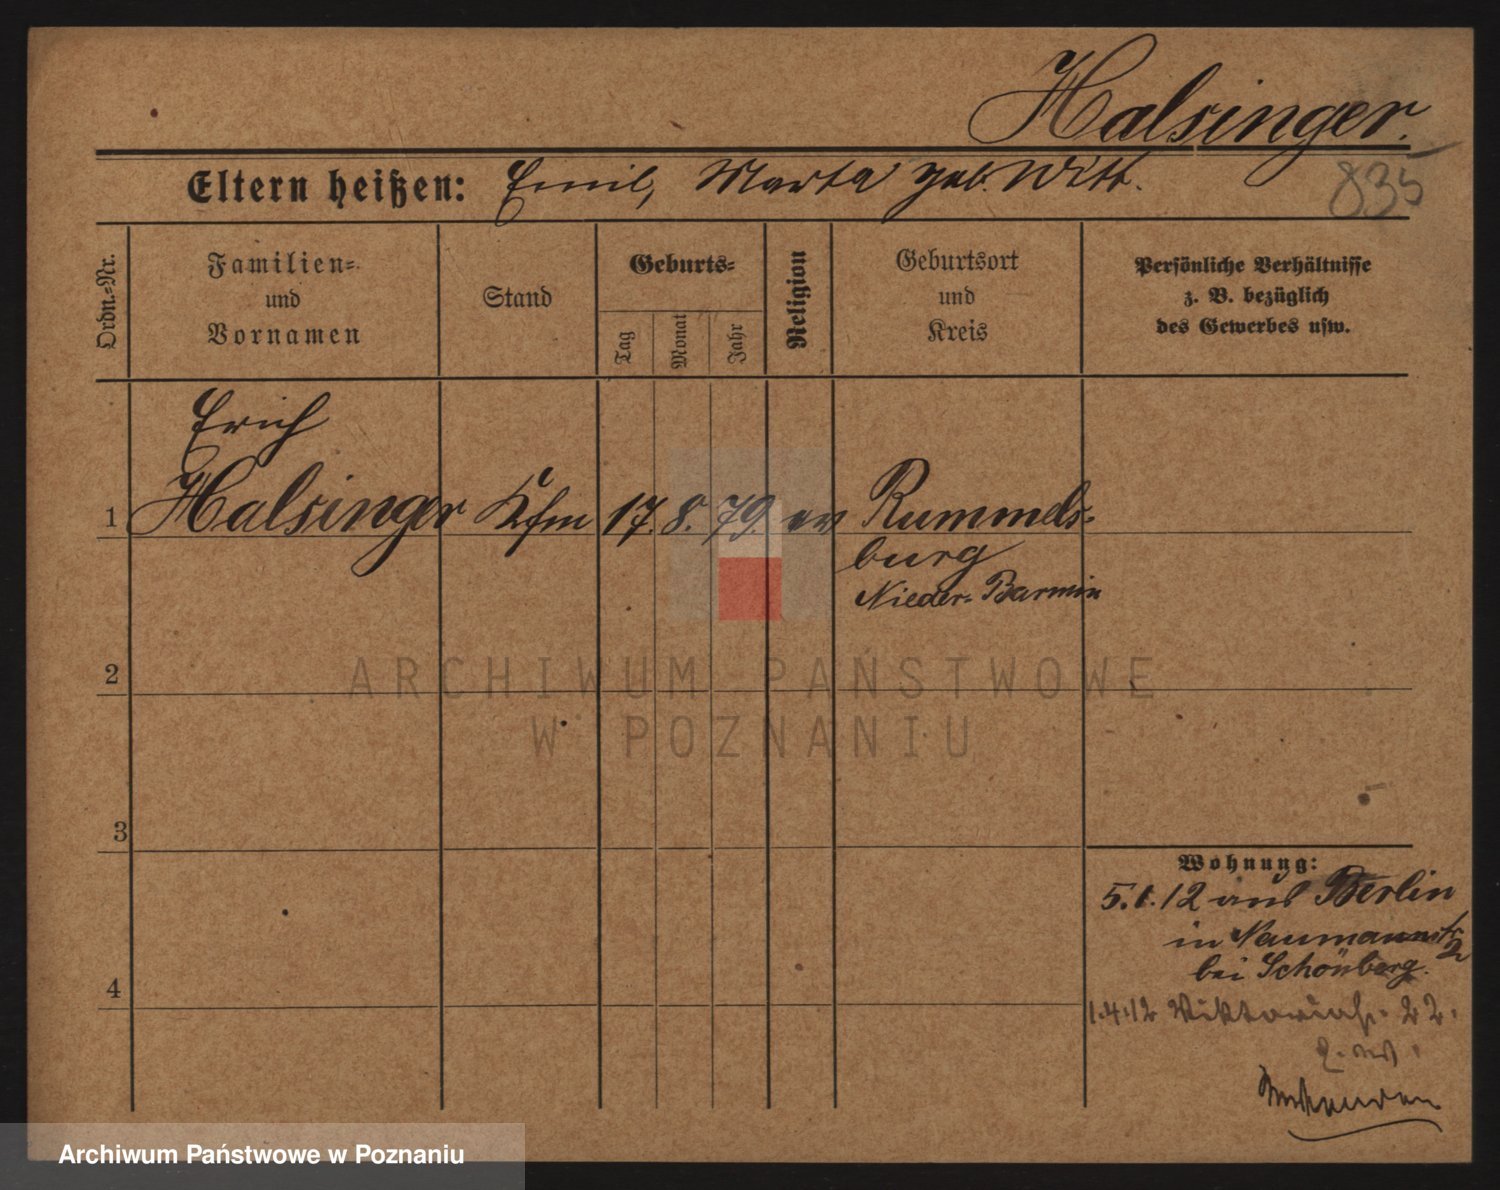 Halsinger.
835
Eltern heißen: Emil, Marta geb. Witt.
Ordn.-Nr.
Familien-
und
Vornamen
Stand
Geburts-
Tag
Monat
Jahr
Religion
Geburtsort
und
Kreis
Persönliche Verhältnisse
z. B. bezüglich
des Gewerbes usw.
Erich
1 Halsinger Kfm 17. 8. 79. ev Rummels-
burg
Nieder-Barmin
2
ARCHIWUM PAŃSTWOWE
W POZNANIU
3
Wohnung:
5.1.12 aus Berlin
in Naumannstr 2
bei Schönberg.
4
1.4.12 Viktoriastr. 22.
Archiwum Państwowe w Poznaniu